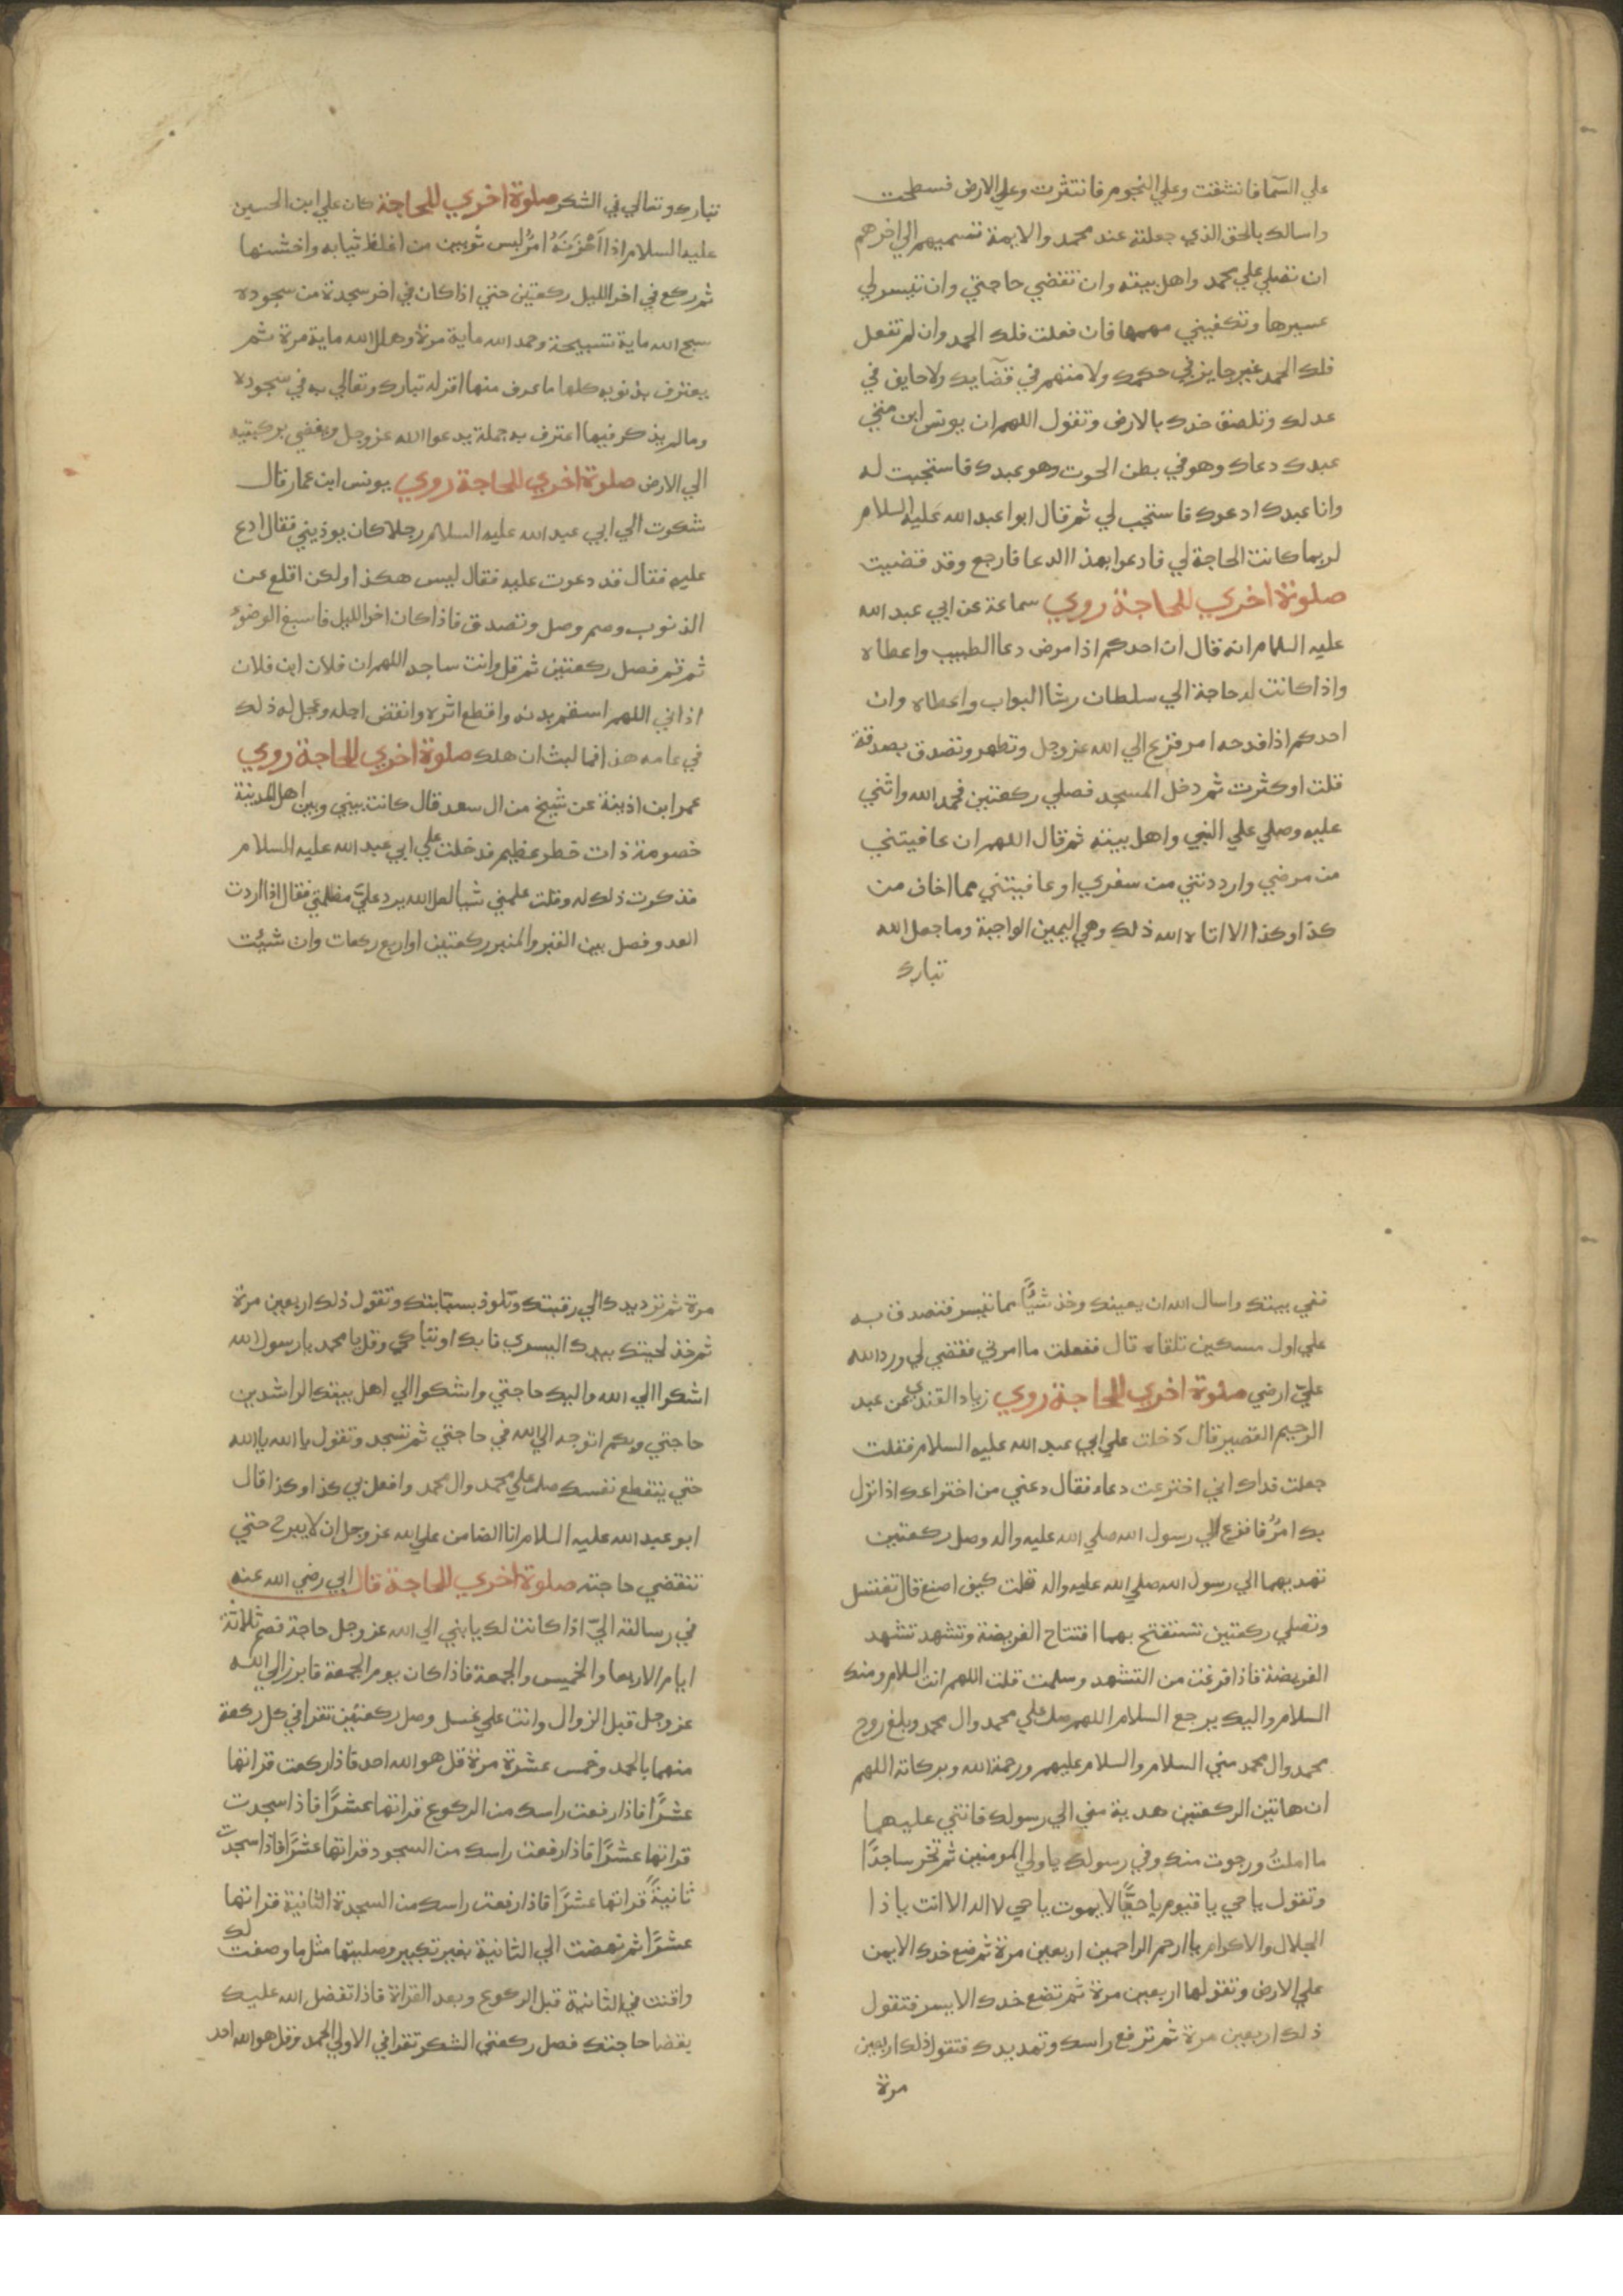 علي السمآ فانشقت وعلي النجوم فانتثرت وعلي الارض فسطحت
واسالك بالحق الذي جعلته عند محمد والايمة تسميهم الي اخرهم
ان تصلي علي محمد واهل بيته وان تقضي حاجتي وان تيسر لي
عسيرها وتكفيني مهمها فان فعلت فلك الحمد وان لم تفعل
فلك الحمد غير جايز في حكمك ولا متهم في قضايك ولا حايف في
عدلك وتلصق خدك بالارض وتقول اللهم ان يونس ابن متي
عبدك دعاك وهو في بطن الحوت وهو عبدك فاستجبت له
وانا عبدك ادعوك فاستجب لي ثم قال ابوا عبد الله عليه السلام
لربما كانت الحاجة لي فادعوا بهذا الدعا فارجع وقد قضيت
صلوة اخري للحاجة روي سماعة عن ابي عبد الله
عليه السلام انه قال ان احدكم اذا مرض دعا الطبيب واعطاه
واذا كانت له حاجة الي سلطان رشا البواب واعطاه وان
احدكم اذا فدحه امر فزع الي الله عز وجل وتطهر وتصدق بصدقة
قلت او كثرت ثم دخل المسجد فصلي ركعتين فحمد الله واثني
عليه وصلي علي النبي واهل بيته ثم قال اللهم ان عافيتني
من مرضي وارددتني من سفري او عافيتني مما اخاف من
كذا وكذا الا اتاه الله ذلك وهي اليمين الواجبة وما جعل الله
تبارك
تبارك وتعالي في الشكر صلوة اخري للحاجة كان علي ابن الحسين
عليه السلام اذا احْزَنَهُ امرٌ لبس ثوبين من اغلظ ثيابه واخشنها
ثم ركع في اخر الليل ركعتين حتي اذا كان في اخر سجدة من سجوده
سبح الله ماية تسبيحة وحمد الله ماية مرة وهلل الله ماية مرة ثم
يعترف بذنوبه كلها ما عرف منها اقر له تبارك وتعالي به في سجوده
وما لم يذكر فيها اعترف به جملة يدعوا الله عز وجل ويفضي بركبتيه
الي الارض صلوة اخري للحاجة روي يونس ابن عمار قال
شكوت الي ابي عبد الله عليه السلام رجلا كان يوذيني فقال ادع
عليه فقال قد دعوت عليه فقال ليس هكذا ولكن اقلع عن
الذنوب وصم وصل وتصدق فاذا كان اخر الليل فاسبغ الوضوء
ثم قم فصل ركعتين ثم قل وانت ساجد اللهم ان فلان ابن فلان
اذاني اللهم اسقم بدنه واقطع اثره وانقض اجله وعجل له ذلك
في عامه هذا فما لبث ان هلك صلوة اخري للحاجة روي
عمر ابن اذينة عن شيخ من ال سعد قال كانت بيني وبين اهل المدينة
خصومة ذات خطر عظيم فدخلت علي ابي عبد الله عليه السلام
فذكرت ذلك له وقلت علمني شيا لعل الله يرد عليّ مظلمتي فقال اذا اردت
العدو فصل بين القبر والمنبر ركعتين او اربع ركعات وان شيْت
ففي بيتك واسال الله ان يعينك وخذ شيًّا مما تيسر فتصدق به
علي اول مسكين تلقاه قال ففعلت ما امرني فقضي لي ورد الله
عليّ ارضي صلوة اخري للحاجة روي زياد القندي عن عبد
الرحيم القصير قال دخلت علي ابي عبد الله عليه السلام فقلت
جعلت فداك اني اخترعت دعاء فقال دعني من اختراعك اذا نزل
بك امرٌ فافزع الي رسول الله صلي الله عليه واله وصل ركعتين
تهديهما الي رسول الله صلي الله عليه واله قلت كيف اصنع قال تغتسل
وتصلي ركعتين تستفتح بهما افتتاح الفريضة وتشهد تشهد
الفريضة فاذا فرغت من التشهد وسلمت قلت اللهم انت السلام ومنك
السلام واليك يرجع السلام اللهم صل علي محمد وال محمد وبلغ روح
محمد وال محمد مني السلام والسلام عليهم ورحمة الله وبركاته اللهم
ان هاتين الركعتين هدية مني الي رسولك فاثني عليهما
ما املتُ ورجوت منك وفي رسولك يا ولي المومنين ثم تخر ساجدًا
وتقول يا حي يا قيوم يا حيًّا لا يموت يا حي لا اله الا انت يا ذا
الجلال والاكرام يا ارحم الراحمين اربعين مرة ثم ضع خدك الايمن
علي الارض وتقولها اربعين مرة ثم تضع خدك الايسر فتقول
ذلك اربعين مرة ثم ترفع راسك وتمد يدك فتقول ذلك اربعين
مرة
مرة ثم ترد يدك الي رقبتك وتلوذ بسبّابتك وتقول ذلك اربعين مرة
ثم خذ لحيتك بيدك اليسري فابك او تباكي وقل يا محمد يا رسول الله
اشكوا الي الله واليك حاجتي واشكوا الي اهل بيتك الراشدين
حاجتي وبكم اتوجه الي الله في حاجتي ثم تسجد وتقول يا الله يا الله
حتي ينقطع نفسك صل علي محمد وال محمد وافعل بي كذا وكذا قال
ابو عبد الله عليه السلام انا الضامن علي الله عز وجل ان لا يبرح حتي
تنقضي حاجته صلوة اخري للحاجة قال ابي رضي الله عنه
في رسالته اليّ اذا كانت لك يا بني الي الله عز وجل حاجة فصم ثلاثة
ايام الاربعا والخميس والجمعة فاذا كان يوم الجمعة فابرز الي الله
عز وجل قبل الزوال وانت علي غسل وصل ركعتين تقرا في كل ركعة
منهما بالحمد وخمس عشرة مرة قل هو الله احد فاذا ركعت قراتها
عشرًا فاذا رفعت راسك من الركوع قراتها عشرًا فاذا سجدت
قراتها عشرًا فاذا رفعت راسك من السجود قراتها عشرًا فاذا سجدت
ثانيةً قراتها عشرًا فاذا رفعت راسك من السجدة الثانية قراتها
عشرًا ثم نهضت الي الثانية بغير تكبير وصليتها مثل ما وصفت لك
واقنت في الثانية قبل الركوع وبعد القراة فاذا تفضل الله عليك
بقضا حاجتك فصل ركعتي الشكر تقرا في الاولي الحمد وقل هو الله احد